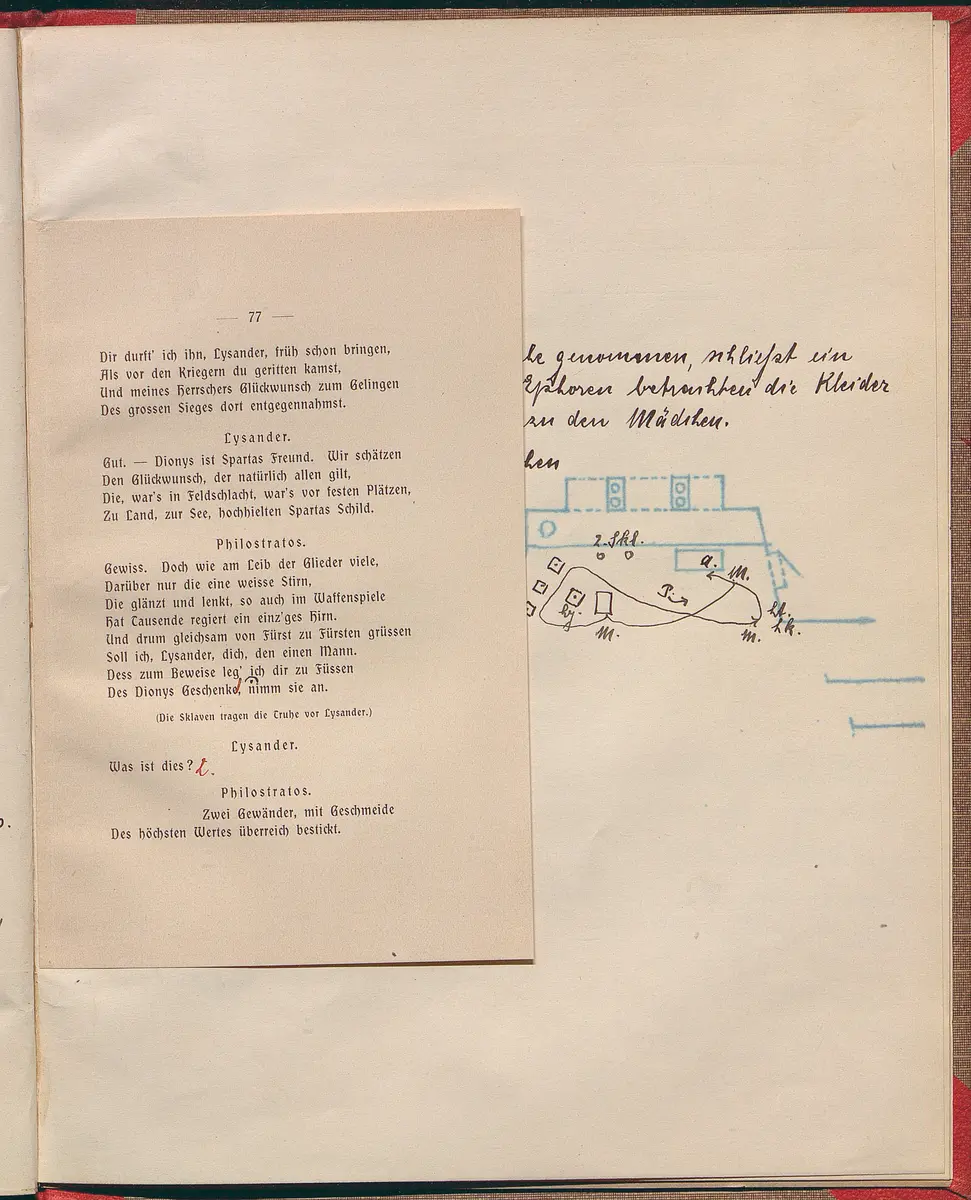 — 77 —
Dir durft' ich ihn, Lysander, früh schon bringen,
Als vor den Kriegern du geritten kamst,
Und meines Herrschers Glückwunsch zum Gelingen
Des grossen Sieges dort entgegennahmst.
Lysander.
Gut. — Dionys ist Spartas Freund. Wir schätzen
Den Glückwunsch, der natürlich allen gilt,
Die, war's in Feldschlacht, war's vor festen Plätzen,
Zu Land, zur See, hochhielten Spartas Schild.
Philostratos.
Gewiss. Doch wie am Leib der Glieder viele,
Darüber nur die eine weisse Stirn,
Die glänzt und lenkt, so auch im Waffenspiele
Hat Tausende regiert ein einz'ges Hirn.
Und drum gleichsam von Fürst zu Fürsten grüssen
Soll ich, Lysander, dich, den einen Mann.
Dess zum Beweise leg' ich dir zu Füssen
Des Dionys Geschenke, nimm sie an.
(Die Sklaven tragen die Truhe vor Lysander.)
Lysander.
Was ist dies? 2.
Philostratos.
Zwei Gewänder, mit Geschmeide
Des höchsten Wertes überreich bestickt.
be genommen, schließt ein
Ephoren betrachten die Kleider
zu den Mädchen.
hen
2. Skl.
a.
M.
P.
Ly.
M.
M.